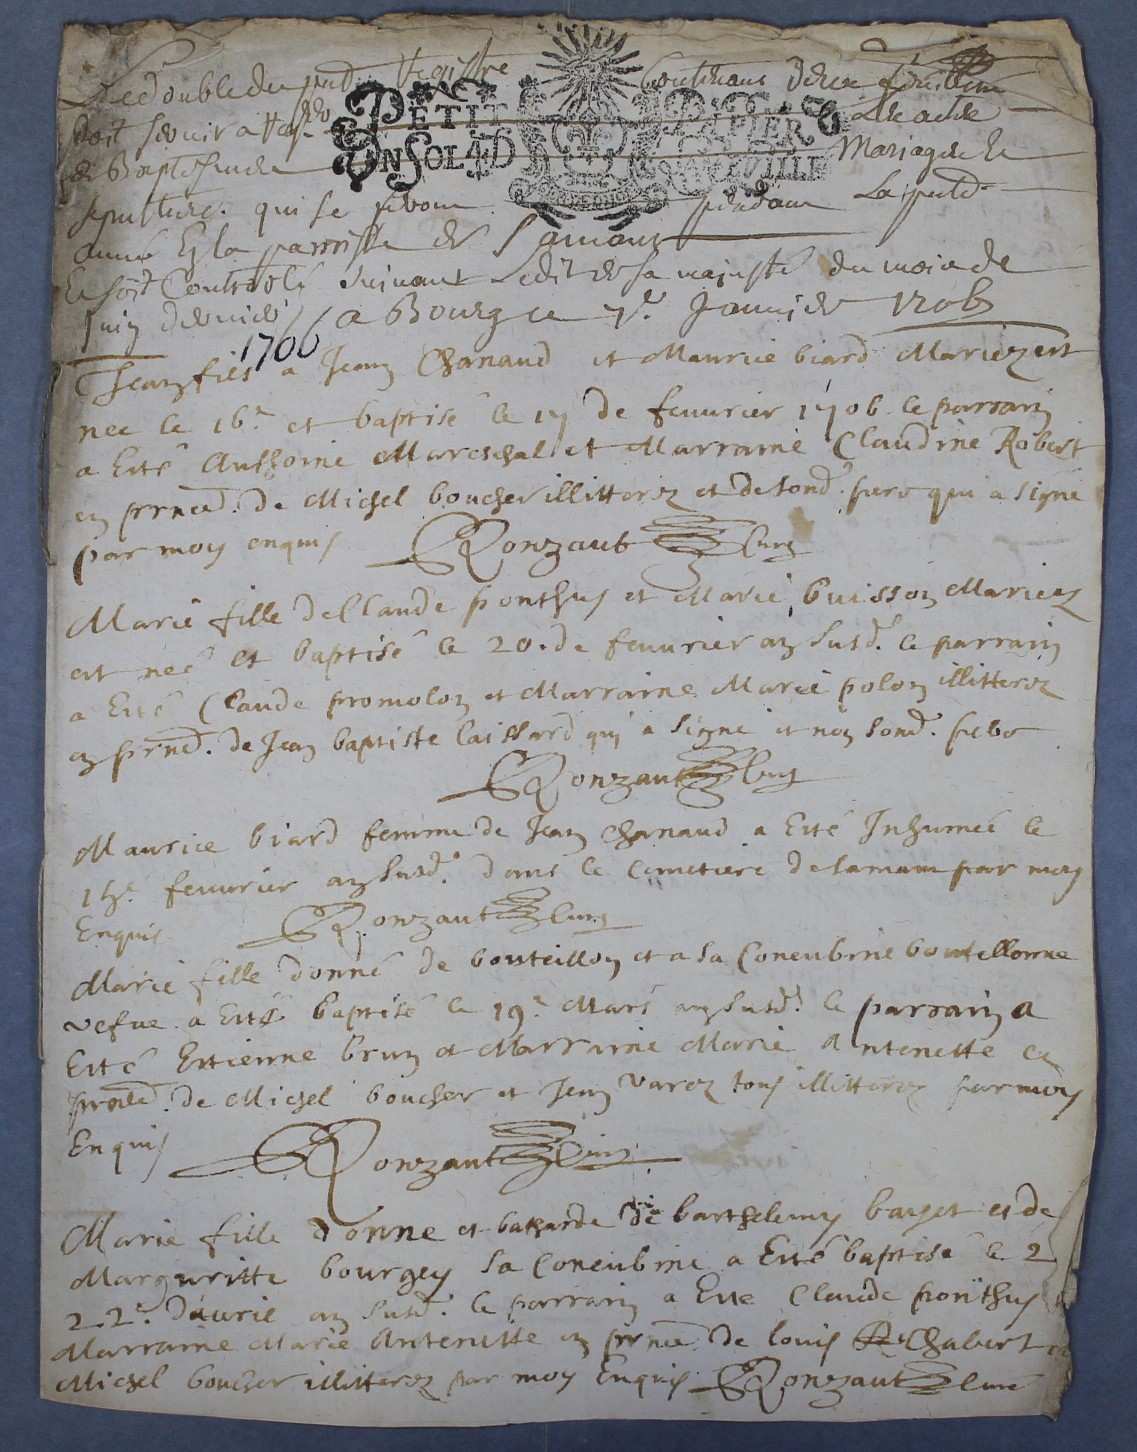 Le double du pnt Registre Contenant deux feuillets
doit servir a
PETIT PAPIER
UN SOL 4 D
LA FEUILLE
de Baptesme Mariage &
sepulture qui se pendant La pnte
année En la parroisse de Samans
Et soit Controllé suivant Ledit de sa majesté du mois de
Juin dernier a Bourg ce 7e. Janvier 1706
1706
Jean fils a Jean Chanaud et Maurice biard Mariez est
nee le 16e. et baptisé le 17 de feuurier 1706 le parrain
a Esté Anthoine Mareschal et Marraine Claudine Robert
en prnce. de Michel boucher illitterez et de sond. pere qui a signé
par moy enquis Ronzaut Curé
Marie fille de Claude ponthus et Marie buisson Mariez
est neé et baptisé le 20. de feuurier an susd. le parrain
a Esté Claude promolon et Marraine Marie polon illitterez
en prnce. de Jean baptiste Caissard qui a signe et non sond. pere
Ronzaut Curé
Maurice biard femme de Jean Chanaud a Esté Inhumeé le
feuurier an susd. dans le Cemetiere de samans par moy
Enquis Ronzaut Curé
Marie fille donné de bouteillon et a sa Concubine boutellonne
vefue a Esté baptisé le 19e. Mars an susd. le parrain a
Esté Estienne brun et Marraine Marie Antenette en
prnce. de Michel boucher et Jean varez tous illitterez par moy
Enquis Ronzaut Curé
Marie fille donne et batarde de barthelemy barget et de
Marguritte bourgey sa Concubine a Esté baptisé le 2
22e. D'auril an susd. le parrain a Este Claude ponthus
Marraine Marie Antenette en prnce. de Louis Chabert et
Michel boucher illitterez par moy Enquis Ronzaut Curé